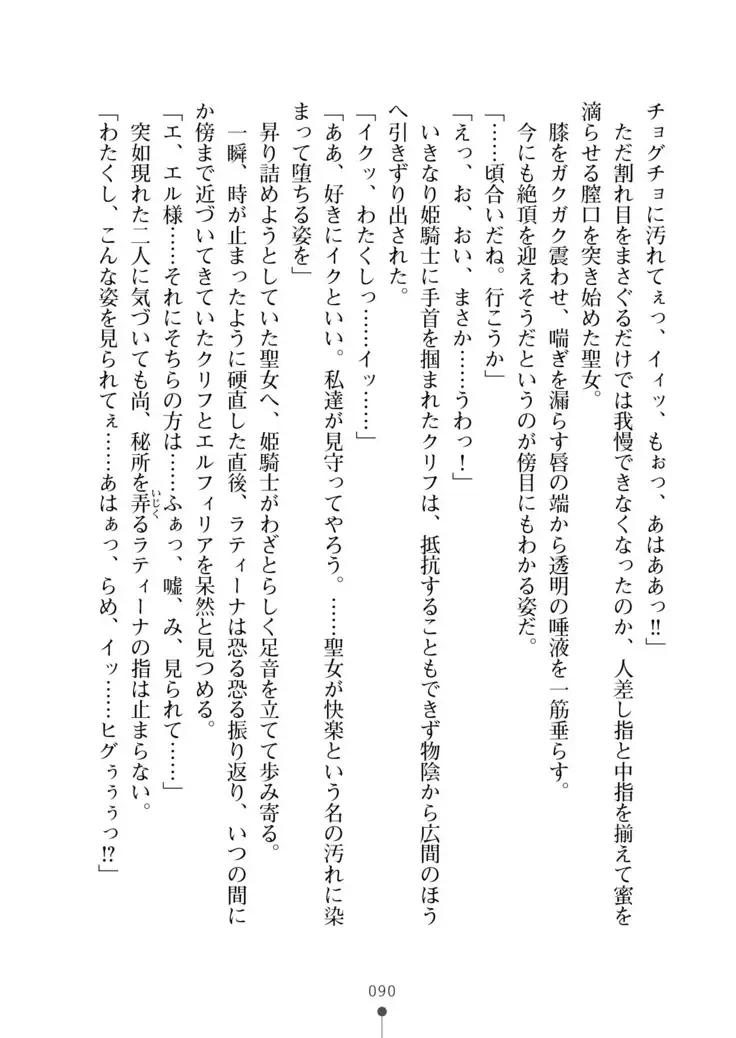 チョグチョに汚れてぇっ、イィッ、もぉっ、あはああっ!!」
　ただ割れ目をまさぐるだけでは我慢できなくなったのか、人差し指と中指を揃えて蜜を
滴らせる膣口を突き始めた聖女。
　膝をガクガク震わせ、喘ぎを漏らす唇の端から透明の唾液を一筋垂らす。
　今にも絶頂を迎えそうだというのが傍目にもわかる姿だ。
「……頃合いだね。行こうか」
「えっ、お、おい、まさか……うわっ！」
　いきなり姫騎士に手首を掴まれたクリフは、抵抗することもできず物陰から広間のほう
へ引きずり出された。
「イクッ、わたくしっ……イッ……」
「ああ、好きにイクといい。私達が見守ってやろう。……聖女が快楽という名の汚れに染
まって堕ちる姿を」
　昇り詰めようとしていた聖女へ、姫騎士がわざとらしく足音を立てて歩み寄る。
　一瞬、時が止まったように硬直した直後、ラティーナは恐る恐る振り返り、いつの間に
か傍まで近づいてきていたクリフとエルフィリアを呆然と見つめる。
「エ、エル様……それにそちらの方は……ふぁっ、嘘、み、見られて……」
　突如現れた二人に気づいても尚、秘所を弄るラティーナの指は止まらない。
いじく
「わたくし、こんな姿を見られてぇ……あはぁっ、らめ、イッ……ヒグぅぅぅっ!?」
090